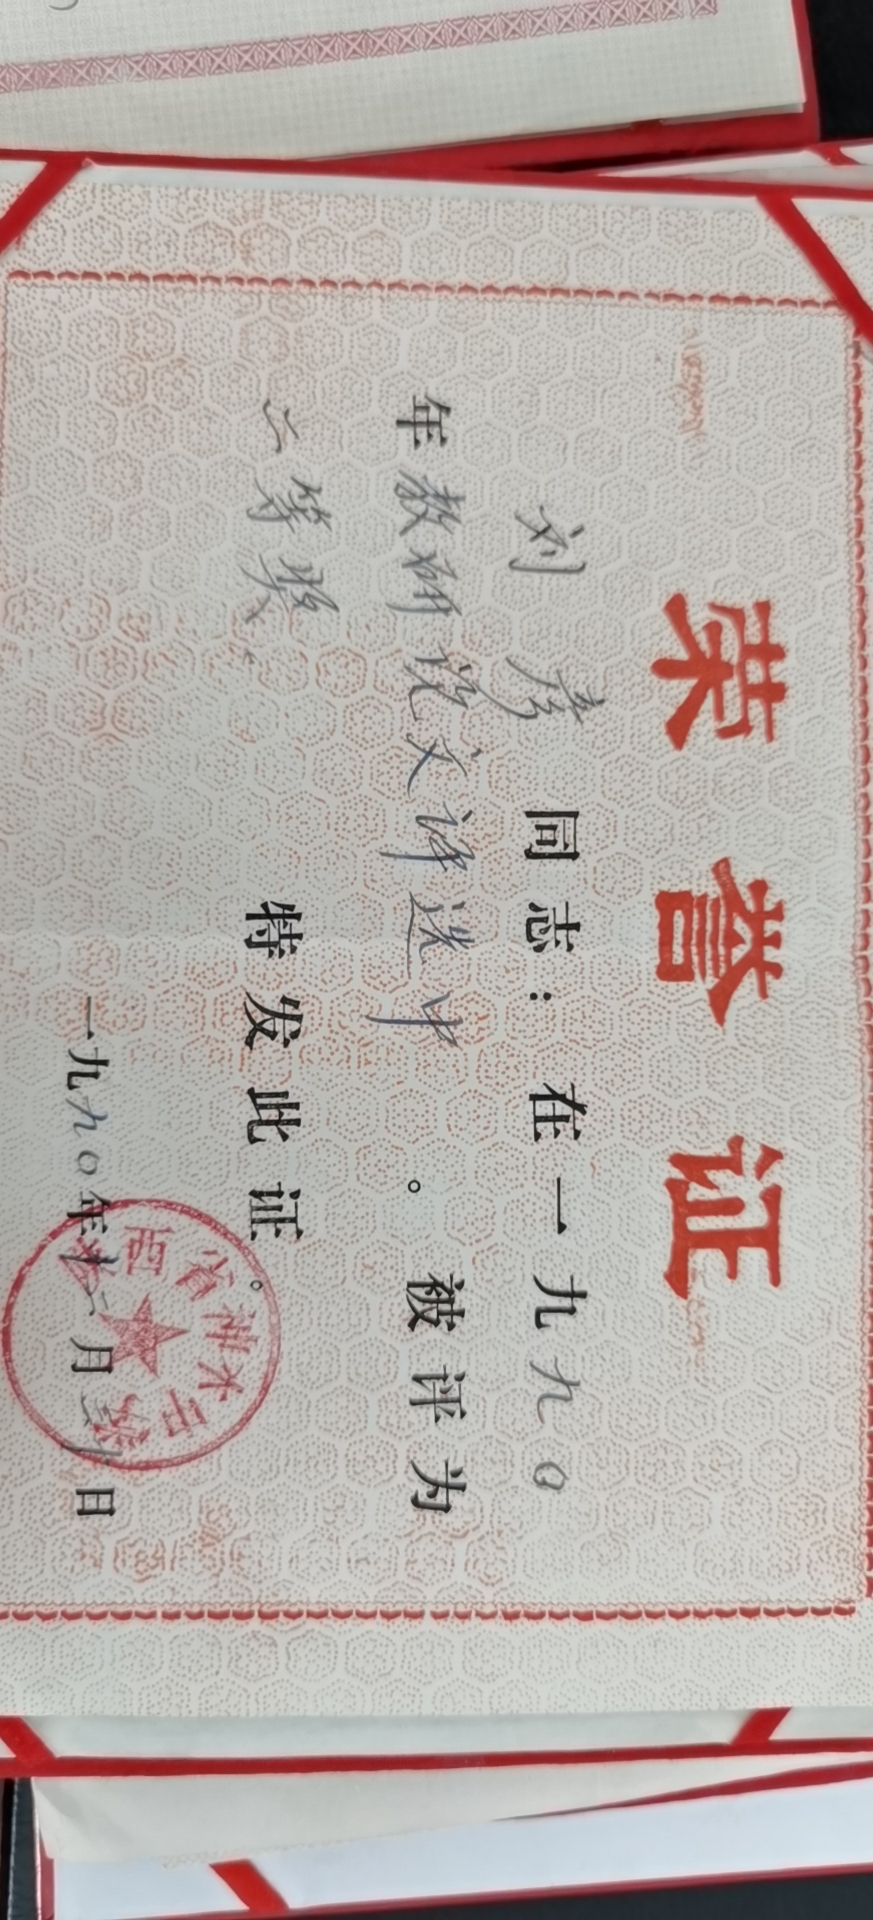 荣誉证
刘彦同志：在一九九〇
年教研论文评选中。被评为
二等奖。
特发此证。
一九九〇年十二月三十日